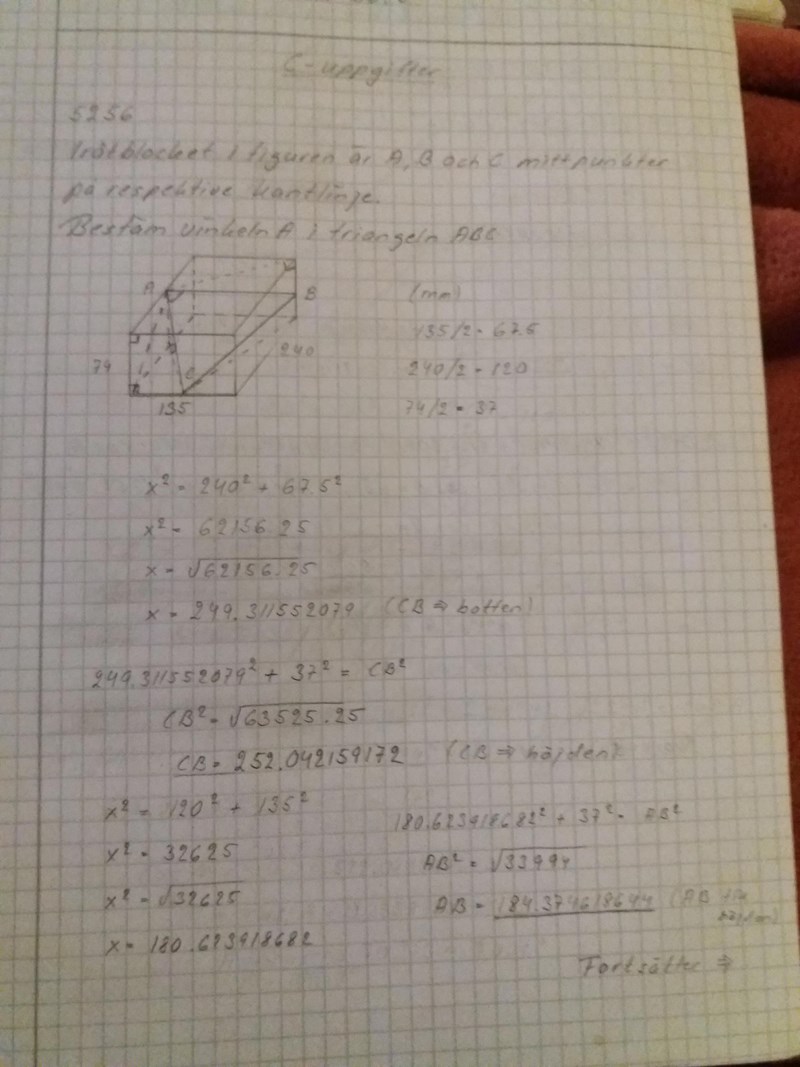 C-uppgifter
5256
I rätblocket i figuren är A, B och C mittpunkter
på respektive kantlinje.
Bestäm vinkeln A i triangeln ABC
A
B
(mm)
135/2 = 67.5
74
C
240
240/2 = 120
135
74/2 = 37
x² = 240² + 67.5²
x² = 62156.25
x = √62156.25
x = 249.311552079 (CB ⇒ botten)
249.311552079² + 37² = CB²
CB² = √63525.25
CB = 252.042159172 (CB ⇒ höjden)
x² = 120² + 135²
x² = 32625
x² = √32625
x = 180.623918682
180.623918682² + 37² = AB²
AB² = √33994
AB = 184.374618644 (AB
höjden)
Fortsätter ⇒